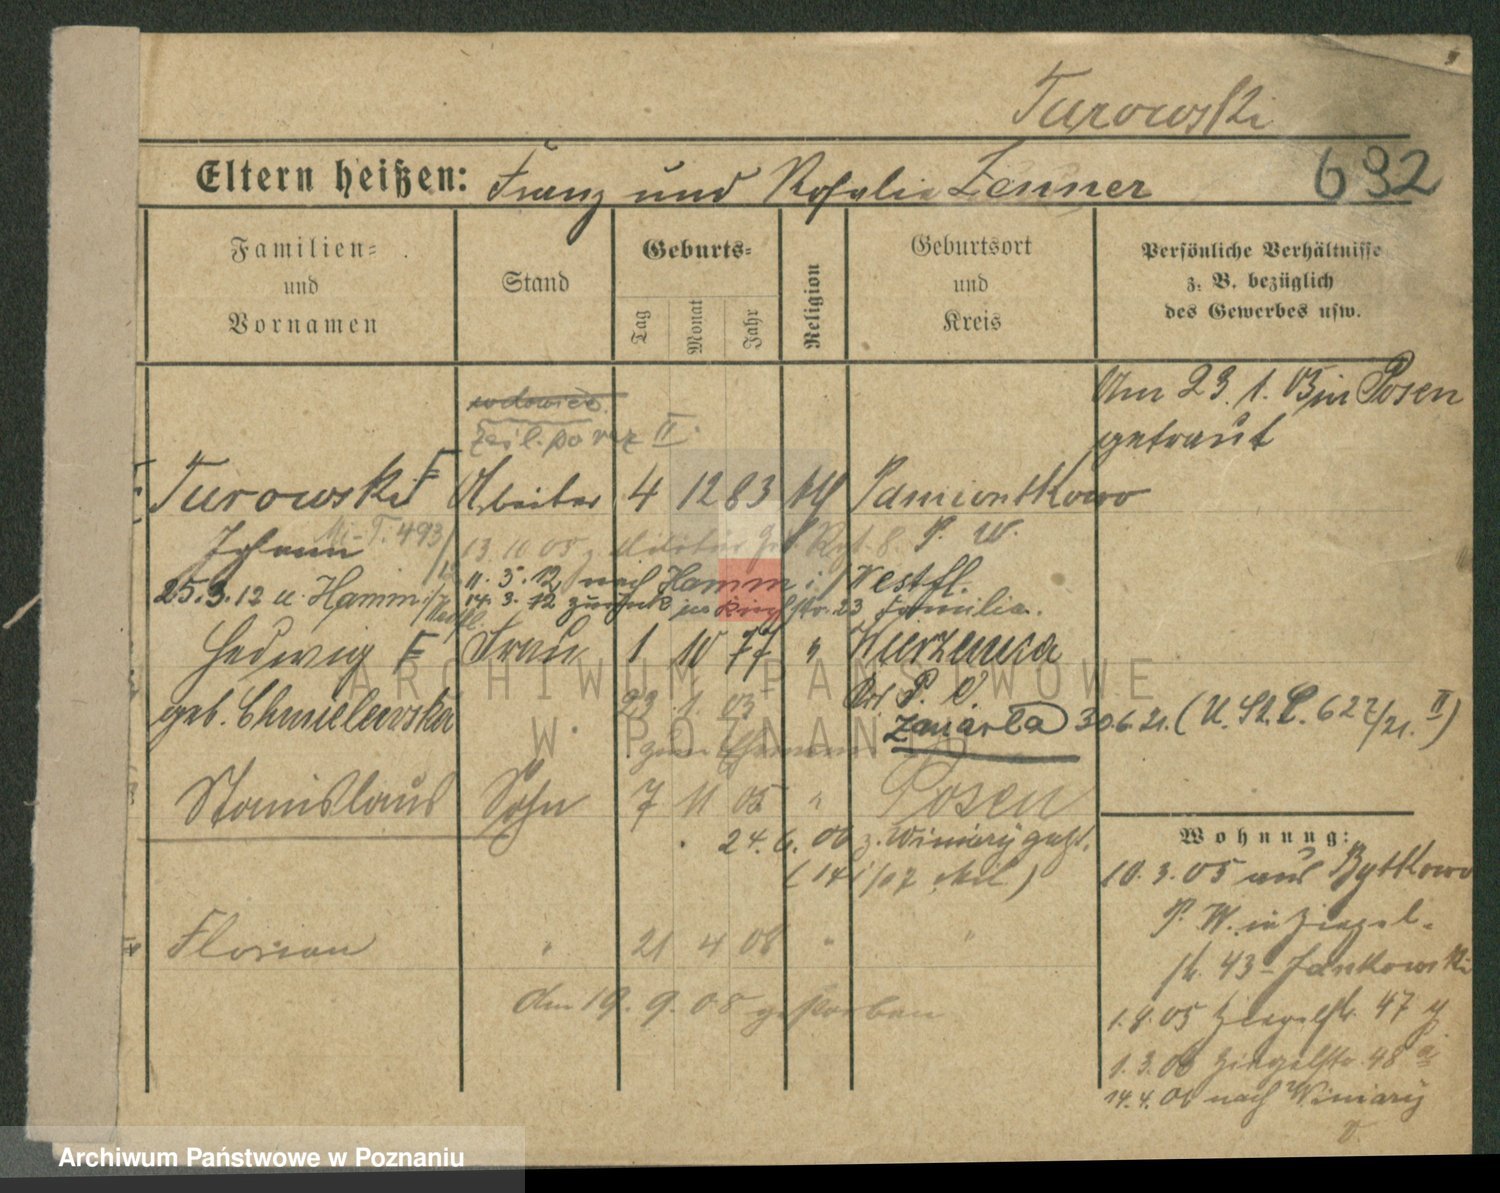 Turowski
Eltern heißen: Franz und Rosalie Zenner
692
Familien=
und
Vornamen
Stand
Geburts=
Tag
Monat
Jahr
Religion
Geburtsort
und
Kreis
Persönliche Verhältnisse
z. B. bezüglich
des Gewerbes usw.
wdowiec
Am 23. 1. 05 in Posen
getraut
Turowski Arbeiter 4 12 83 Pamiontkowo
Johann 493 P. W.
13. 10 05 z. Militär
11. 5. 12 nach Hamm i/Westfl.
25.3.12 n. Hamm i/Westfl.
14. 3. 12 zurück str. 23 Familie.
Hedwig Frau 1 10 77 "
geb. Chmielewska 23 1. 05 P. O.
zum Ehemann
zmarła 30.6.21. (U. St. C. 627/21. II)
Stanislaus Sohn 7 11 05 " Posen
24. 6. 06 z. Winiary
Florian " 21 4 08 " "
Am 19. 9. 08 gestorben
Wohnung:
10. 3. 05 aus Bytkowo
P. W. in Ziegel-
str. 43 - Jankowski
1. 4. 05 Ziegelstr. 47
1. 3. 06 Ziegelstr. 48
14. 4. 06 nach Winiary
ARCHIWUM PAŃSTWOWE
W POZNANIU
Archiwum Państwowe w Poznaniu